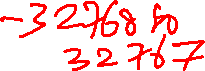 -32768 to
32767